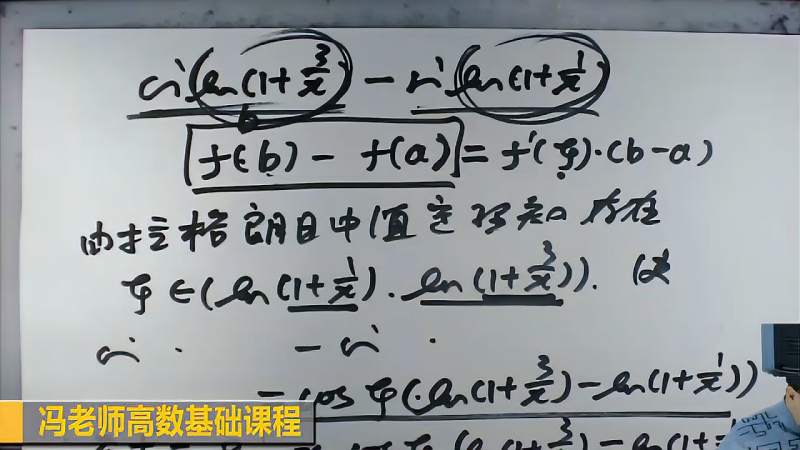 sin(ln(1+3/x)) - sin(ln(1+1/x)
f(b) - f(a) = f'(ξ)·(b-a)
由拉格朗日中值定理知 存在
ξ∈(ln(1+1/x), ln(1+3/x)). 使
sin · - sin ·
= cos ξ(·ln(1+3/x) - ln(1+1/x))
冯老师高数基础课程